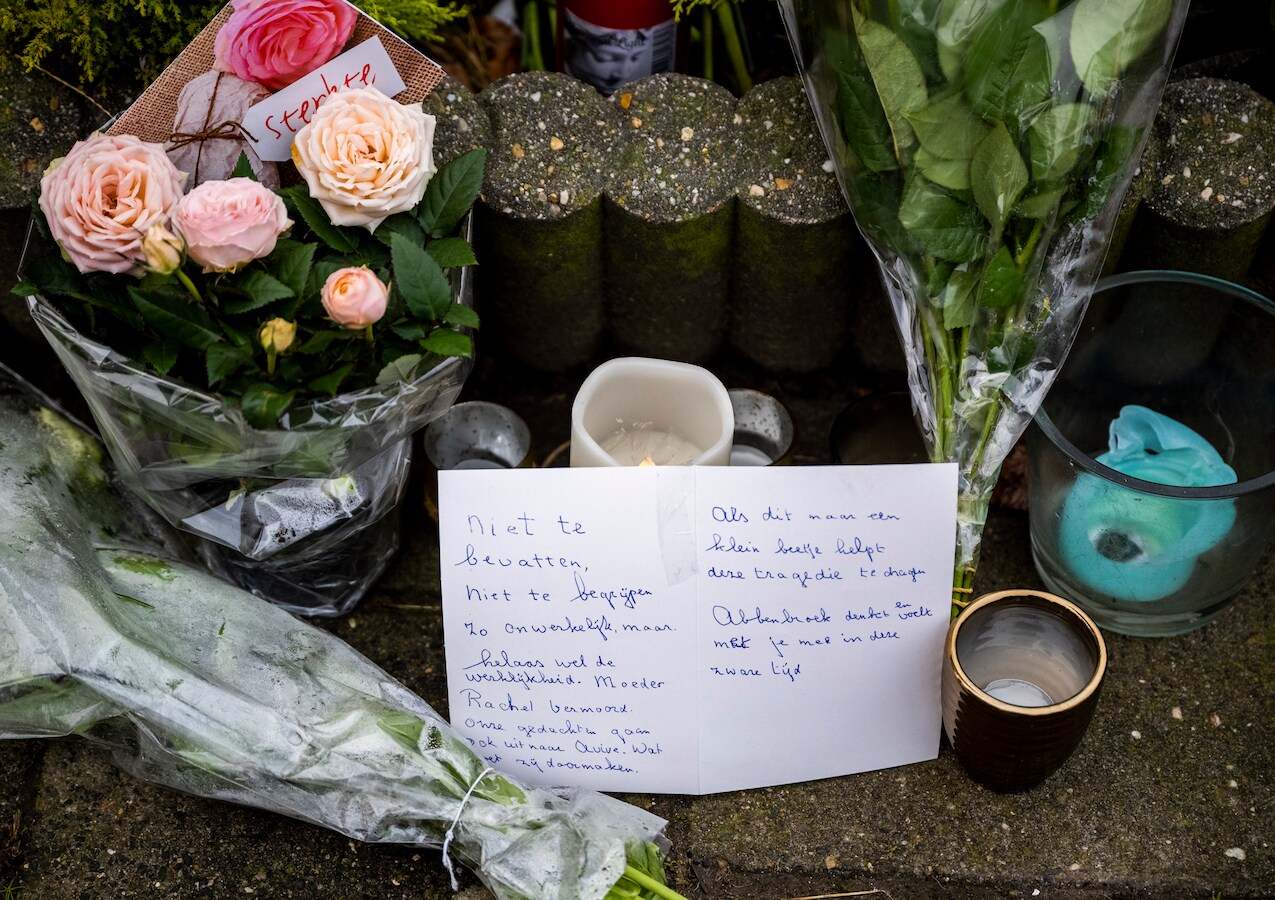 Sterkte,
Light
Niet te
bevatten,
Niet te begrijpen
Zo onwerkelijk, maar.
helaas wel de
werklijkheid. Moeder
Rachel vermoord.
Onze gedachten gaan
ook uit naar Avive. Wat
zij doormaken.
Als dit maar een
klein beetje helpt
deze tragedie te dragen
Abbenbroek denkt en voelt
met je mee in deze
zware tijd